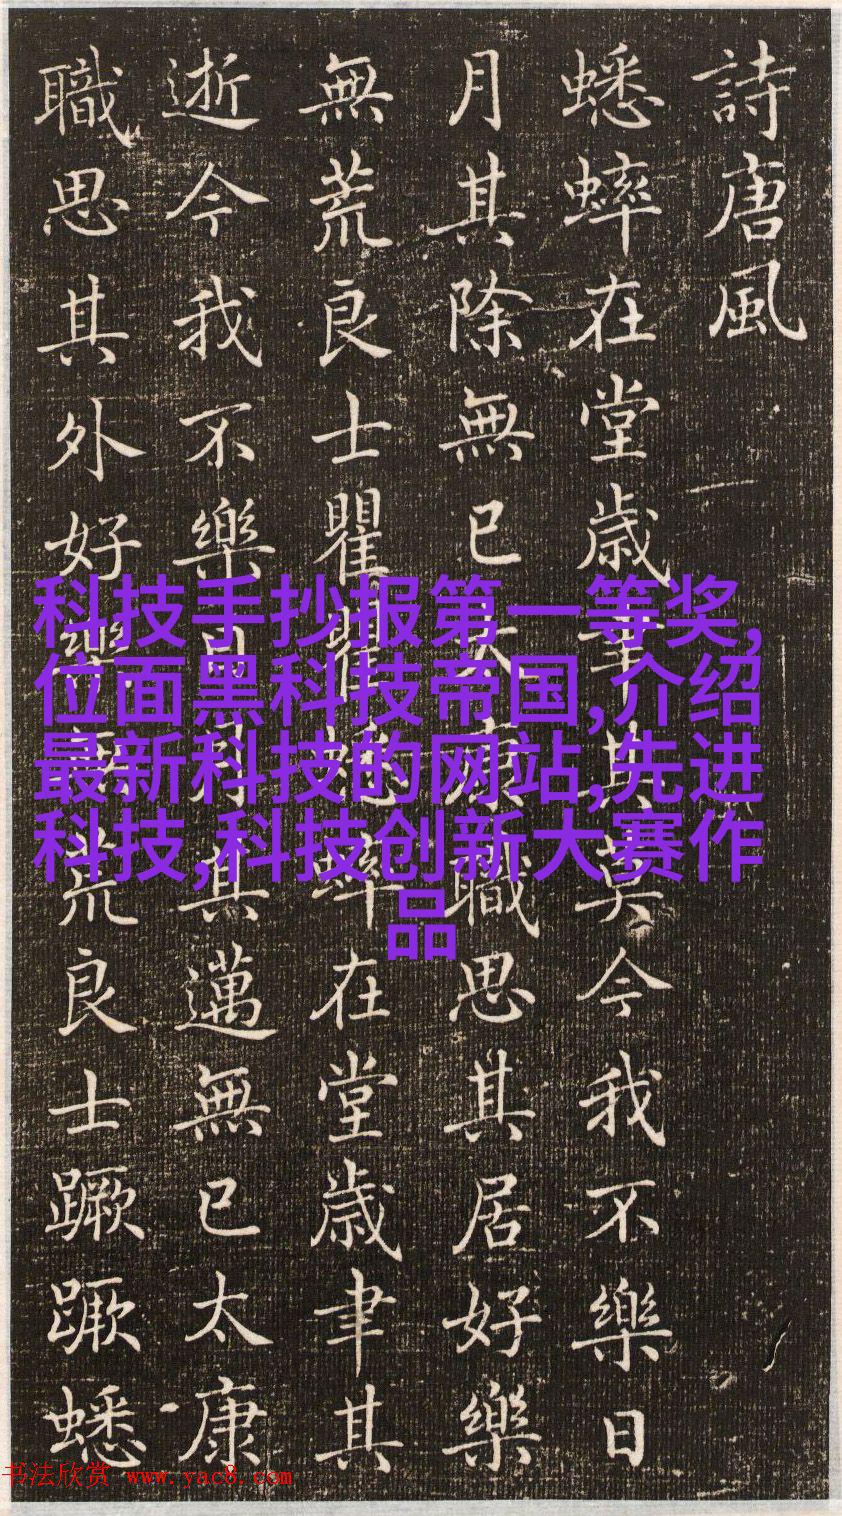 詩唐風
蟋蟀在堂歳聿其莫今我不樂日
月其除無已太康職思其居好樂
無荒良士瞿瞿蟋蟀在堂歳聿其
逝今我不樂日月其邁無已太康
職思其外好樂無荒良士蹶蹶蟋
科技手抄报第一等奖,
位面黑科技帝国,介绍
最新科技的网站,先进
科技,科技创新大赛作
品
书法欣赏 www.yac8.com